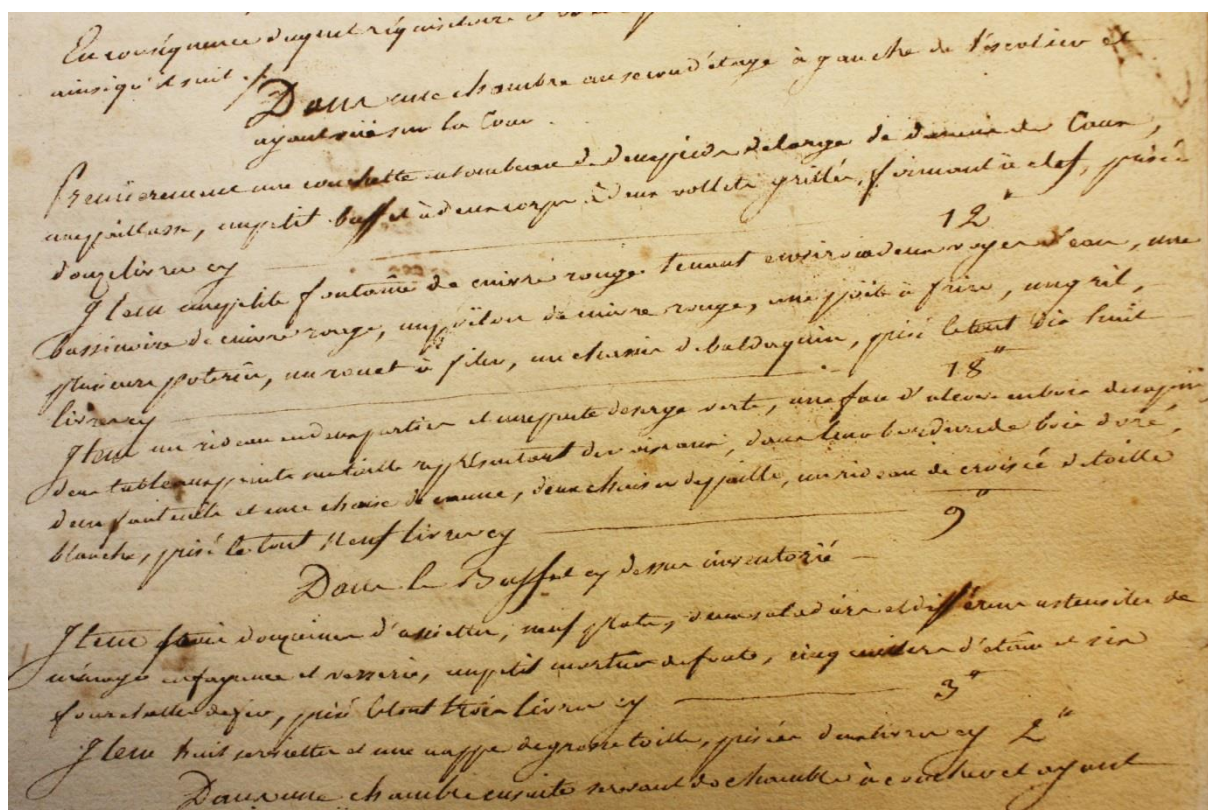 En conséquence dugent réquisitoire et
ainsi qu'il suit /.
Dans une chambre au second étage à gauche de l'escalier et
ayant vüe sur la Cour .
Premierement une couchette de deux pieds de large de
une paillasse, un petit buffet à deux corps à deux vollets grillés, fermant à clef, prisés
douze livres cy 12"
Item une petite fontaine de cuivre rouge tenant environ deux voyes d'eau, une
bassinoire de cuivre rouge, un poëlon de cuivre rouge, une poële à frire, un gril,
plusieurs poteries, un rouet à filer, un chassis de baldaquin, prisé le tout dix huit
livres cy 18"
Item un rideau en deux parties et une pente de serge verte, une face d'alcove en bois de sapin,
deux tableaux peints sur toille représentant des oiseaux, dans leurs bordures de bois doré,
deux fauteuils et une chaise de canne, deux chaises de paille, un rideau de croisée de toille
blanche, prisé le tout neuf livres cy 9"
Dans le Buffet cy dessus inventorié
Item douzaines d'assiettes, neuf plats, deux saladiers et différens ustensiles de
ménage en fayence et verrerie, un petit mortier de fonte, cinq cuillers d'étain et six
fourchettes de fer, prisé le tout trois livres cy 3"
Item huit serviettes et une nappe de grosse toille, prisées deux livres cy 2"
Dans une chambre ensuite servant de chambre à coucher et ayant